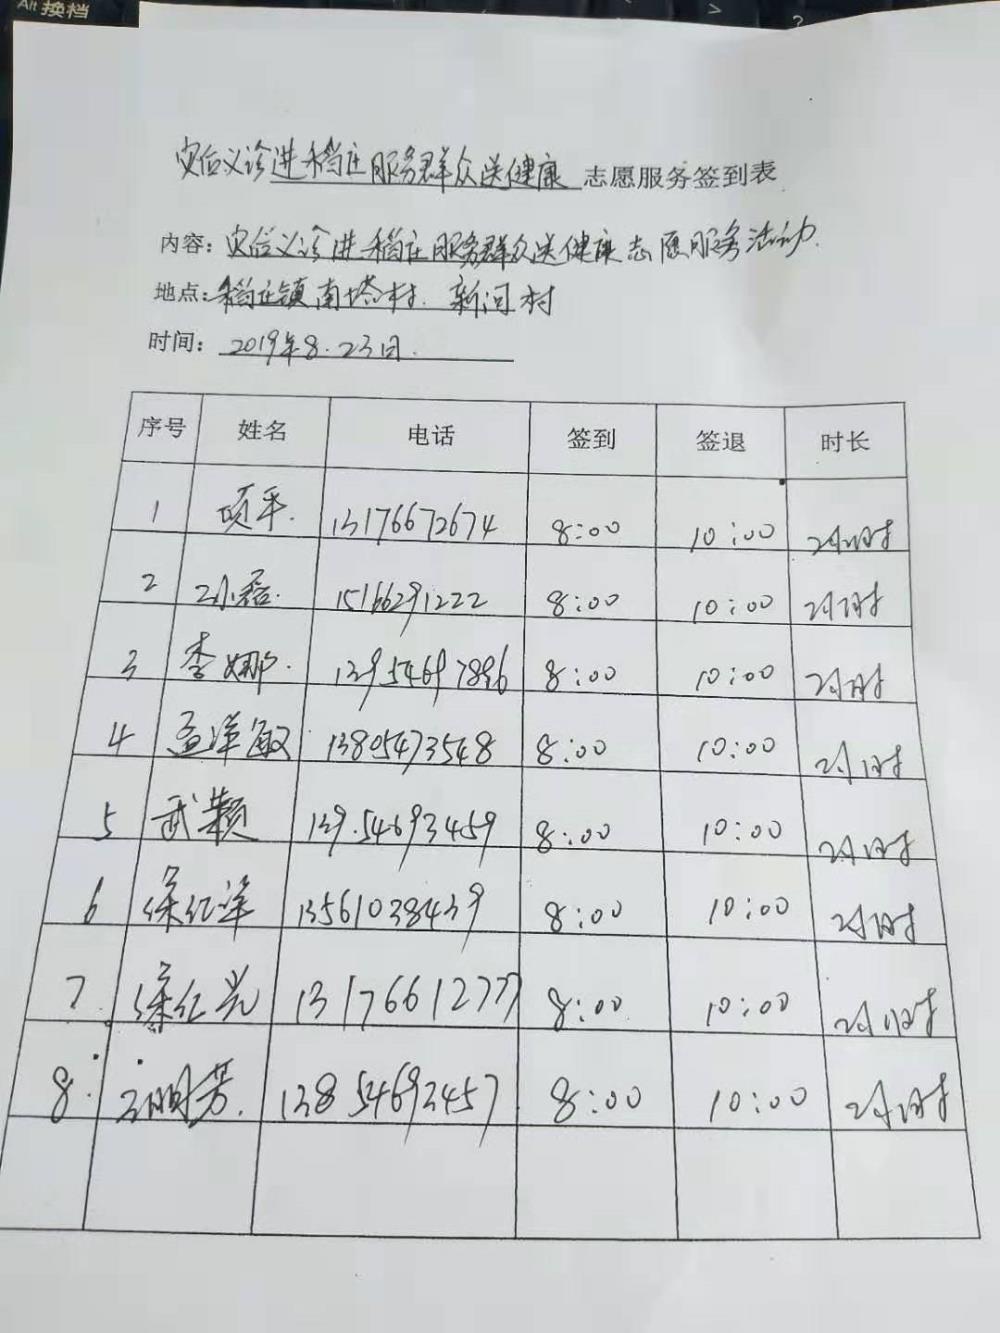 Alt 换档
灾后义诊进稻庄服务群众送健康 志愿服务签到表
内容: 灾后义诊进稻庄服务群众送健康志愿服务活动.
地点: 稻庄镇南塔村. 新河村
时间: 2019年8.23日.
序号 姓名 电话 签到 签退 时长
1 项平. 13176672674 8:00 10:00 2小时
2 15166291222 8:00 10:00 2小时
3 李娜. 13954697896 8:00 10:00 2小时
4 孟洋敏 13805473548 8:00 10:00 2小时
5 武颖 139.54693459 8:00 10:00 2小时
6 徐红洋 13561038439 8:00 10:00 2小时
7 徐红光 13176612777 8:00 10:00 2小时
8. 王明芳. 13854693457 8:00 10:00 2小时